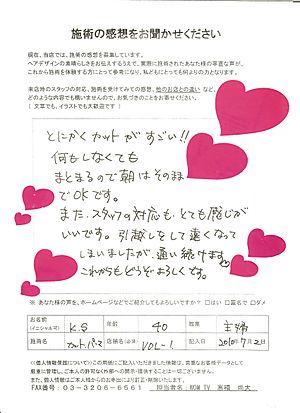 施術の感想をお聞かせください
現在、当店では、施術の感想を募集しています。
ヘアデザインの素晴らしさをお伝えするうえで、実際に施術されたあなた様の率直な声が、
これから施術を体験する方にとって参考になり、私どもにとっても何よりの力となります。
来店時のスタッフの対応、施術を受けてみての感想、他のお店との違い など、
どのような内容でも構いませんので、お気付きのことをお寄せください。
(文章でも、イラストでも大歓迎です!)
とにかくカットがすごい!!
何もしなくても
まとまるので朝はそのまま
でOKです。
また、スタッフの対応も、とても感じが
いいです。引越しをして遠くなって
しまいましたが、通い続けます。
これからもどうぞよろしくです。
※ あなた様の声を、ホームページなどでご紹介してもよろしいですか? □はい □匿名で □ダメ
お名前
(イニシャル可) K.S 年齢 40 職業 主婦
施術名 カット、パーマ 店舗名 VOL-1 記入日 2010年7月2日
<個人情報保護について>この用紙にご記入いただきました情報は、貴重なお客様データとして
厳重に管理し、ご本人の許可なく外部への開示・提供することは一切ございません。
また、個人情報はご本人様からのお申出により訂正・削除いたします。
FAX番号:03-3206-6561 担当者名:HOW TV